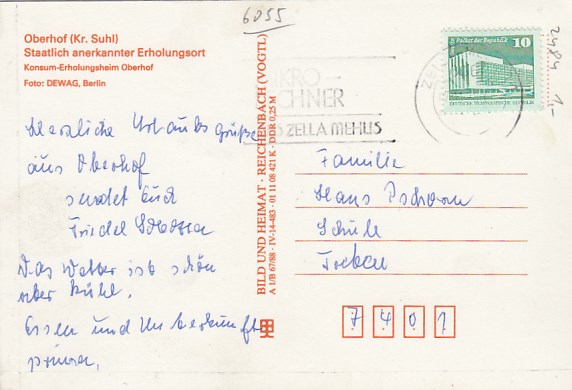 6055
Oberhof (Kr. Suhl)
Staatlich anerkannter Erholungsort
Konsum-Erholungsheim Oberhof
Foto: DEWAG, Berlin
Herzliche Urlaubsgrüße
aus Oberhof
sendet euch
Friedel
Das Wetter ist schön
aber kühl.
Essen und Unterkunft
prima.
BILD UND HEIMAT · REICHENBACH (VOGTL)
A 1/B 67/88 · IV-14-483 · 01 11 08 421 K · DDR 0,25 M
ZELLA MEHLIS
Palast der Republik
10
2484 1,-
Familie
Hans
Schule
7401